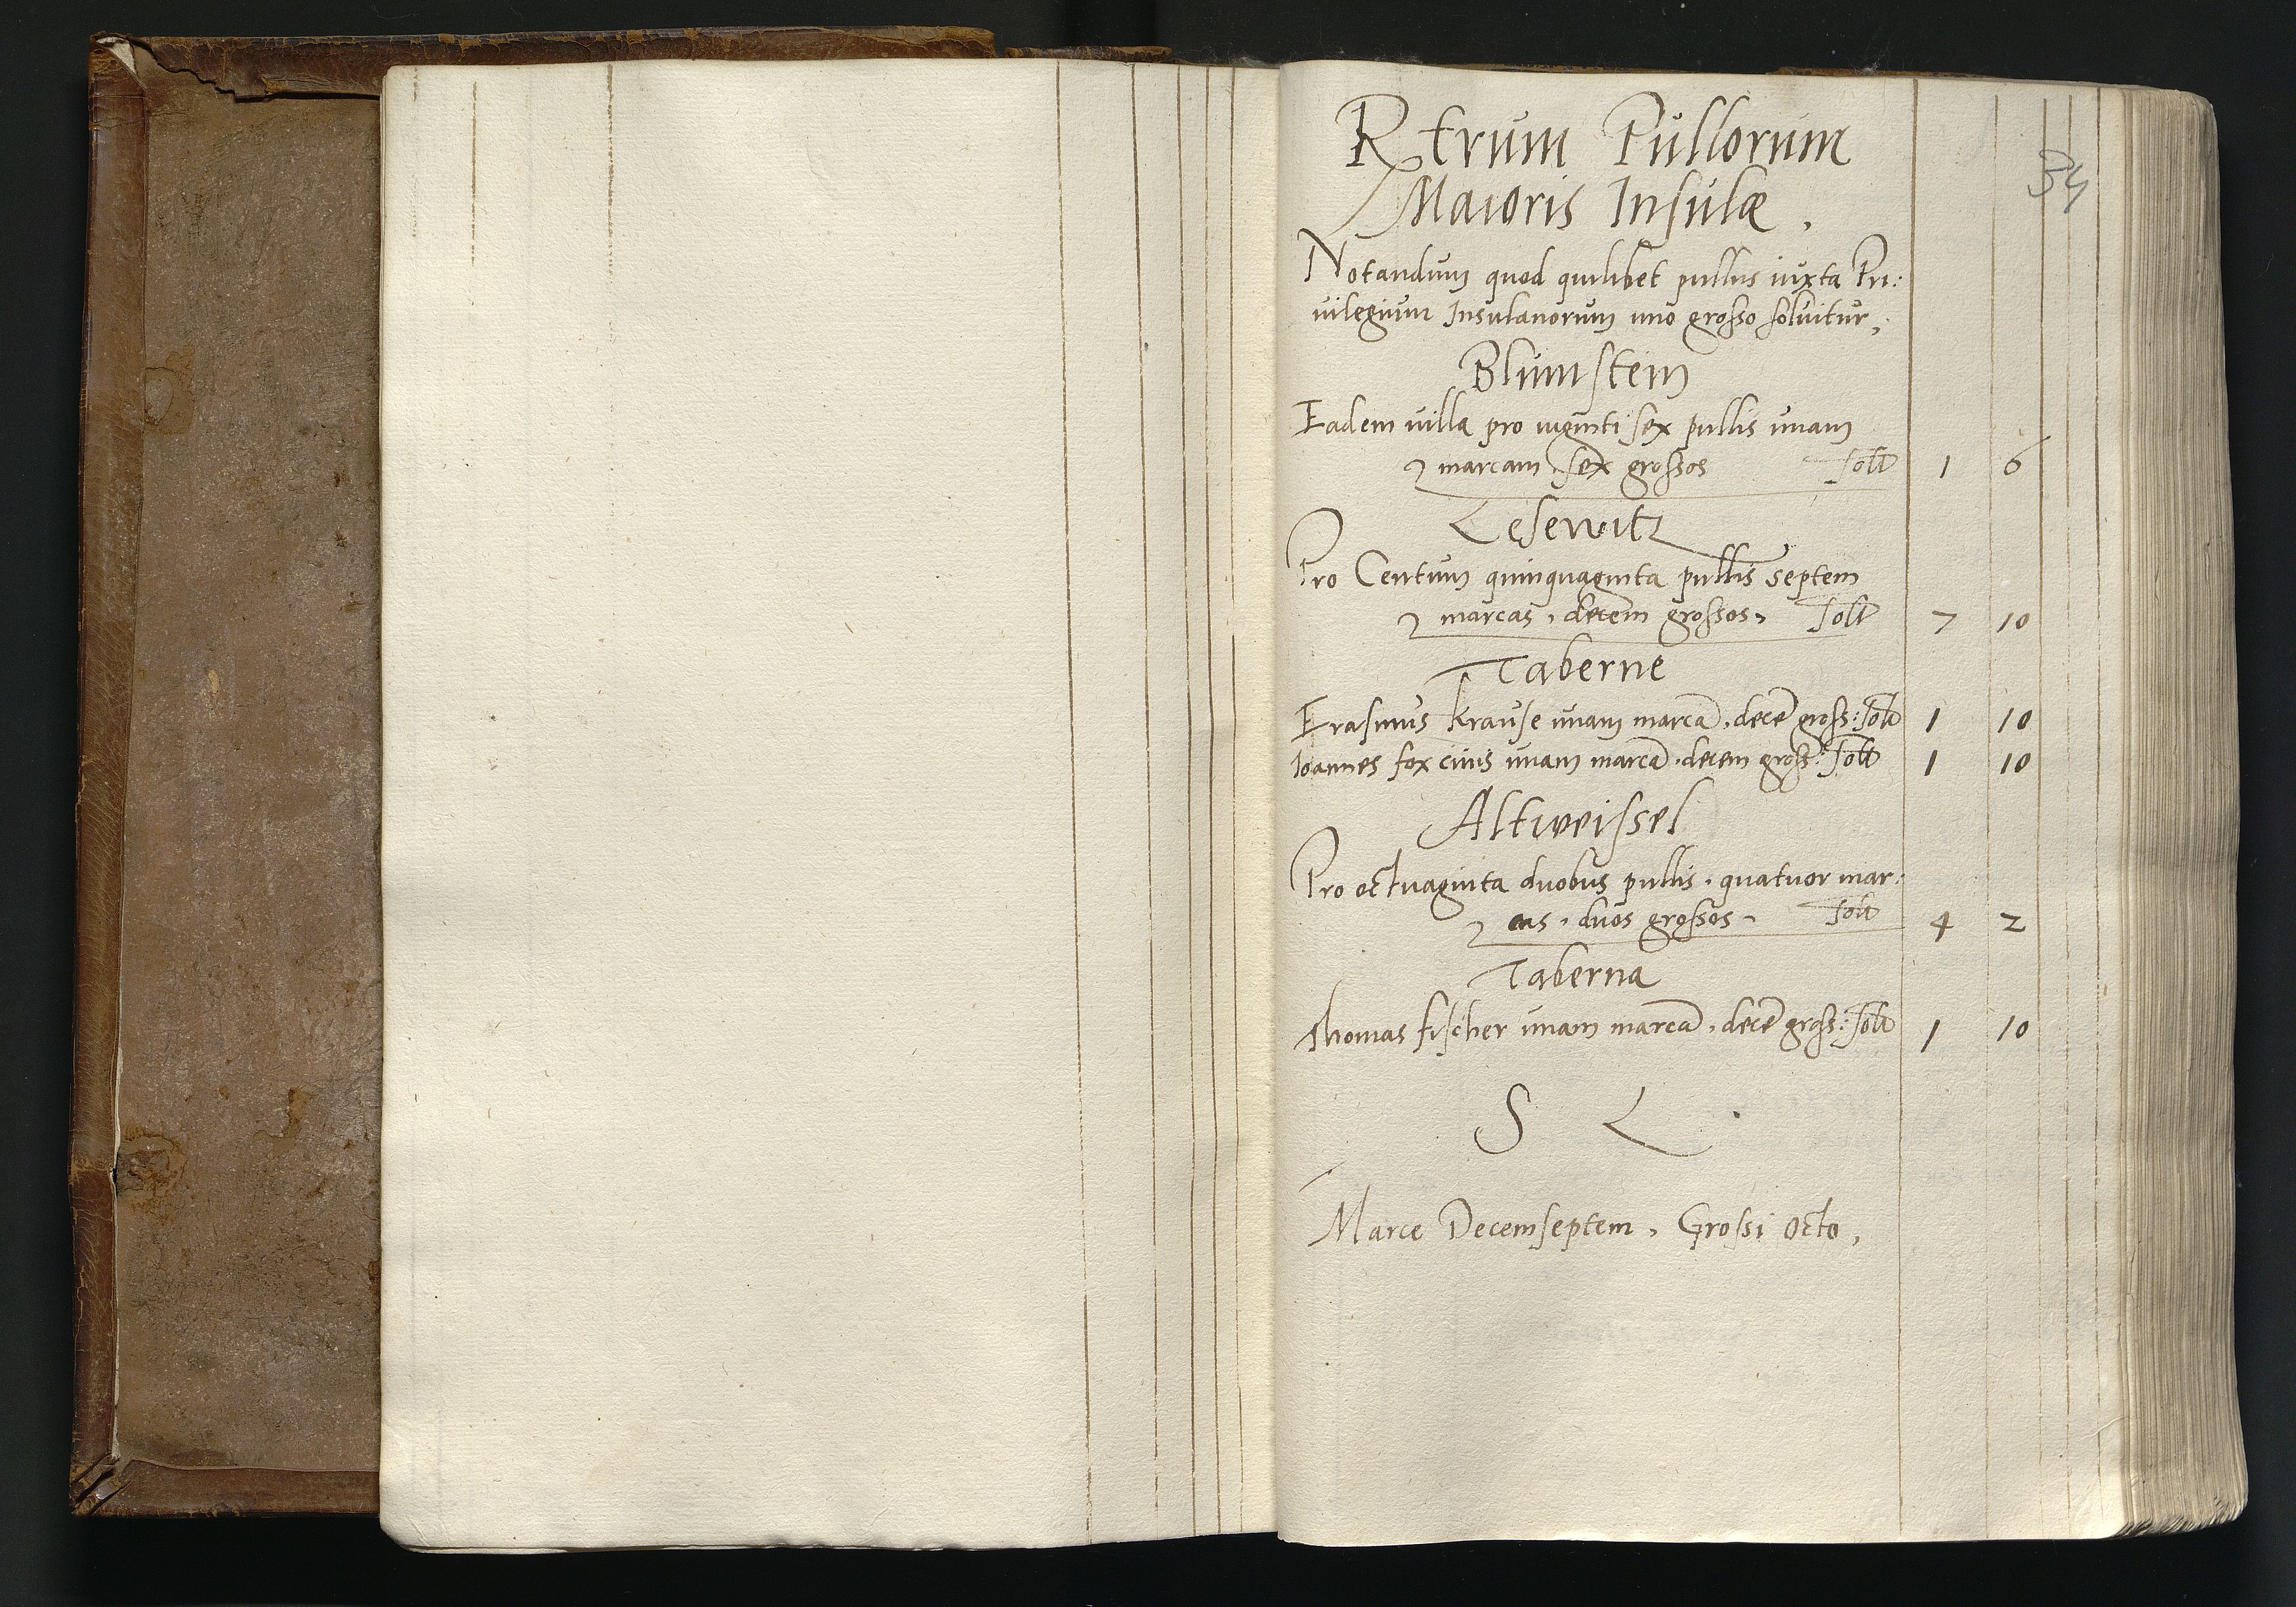 Rtrum Pullorum
Maioris Insulæ,
34
Notandum quod quilibet pullus iuxta Pri:
uilegium Insulanorum uno grosso soluitur,
Blumstein
Eadem uilla pro uiginti sex pullis unam
marcam, sex grossos Solt 1 6
Lesewitz
Pro Centum quinquaginta pullis septem
marcas, decem grossos, Solt 7 10
Taberne
Erasmus Krause unam marcã, decẽ gross: Solt 1 10
Ioannes fox ciuis unam marcã, decem gross: Solt 1 10
Altweissel
Pro octuaginta duobus pullis, quatuor mar:
cas, duos grossos, Solt 4 2
Taberna
Thomas fischer unam marcã, decẽ gross: Solt 1 10
S L
Marce Decemseptem, Grossi octo,